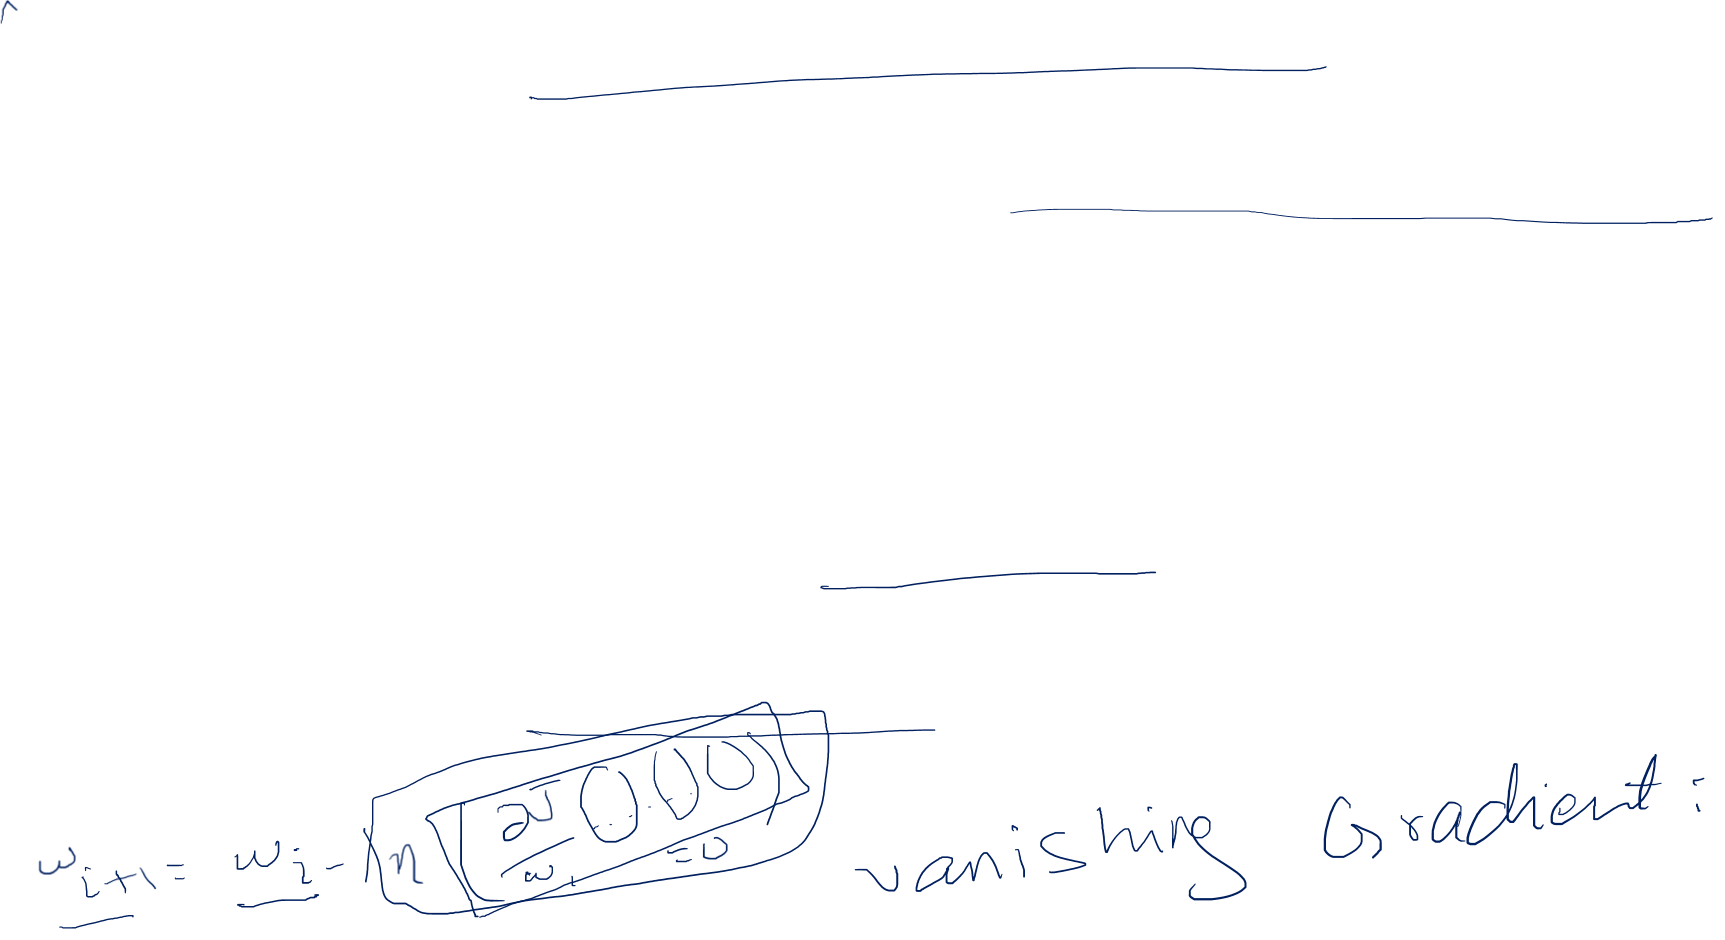 w_{i+1} = w_i - η [∂J ( ) . ( ) . ( )] / w_1 = 0 vanishing Gradient :